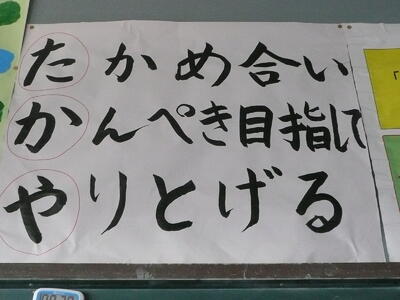 たかめ合い
かんぺき目指して
やりとげる